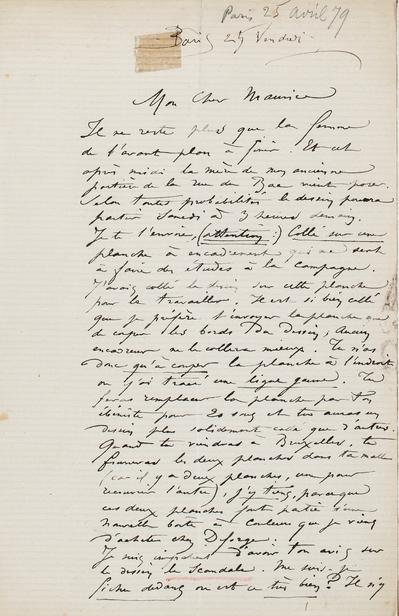 Paris 25 avril 79
Paris 25 Vendredi
Mon Cher Maurice
Il ne reste plus que la femme
de l'avant plan à finir. Et cet
après midi la mère de mon ancienne
portière de la rue du Bac vient poser.
Selon toutes probabilités le dessin pourra
partir Samedi à 3 heures demain.
Je te l'envoie, (attention:) Collé sur une
planche à encadrement qui me sert
à faire des études à la campagne.
J'avais collé le dessin sur cette planche
pour le travailler. Il est si bien collé
que je préfère t'envoyer la planche que
de couper les bords du dessin, aucun
encadreur ne le collera mieux. Tu n'as
donc qu'à couper la planche à l'endroit
où j'ai tracé une ligne jaune. Tu
feras remplacer la planche par ton
ébéniste pour 20 sous et tu auras un
dessin plus solidement collé que d'autres.
Quand tu viendras à Bruxelles, tu
fourreras les deux planches dans ta malle
(car il y a deux planches, une pour
recouvrir l'autre), j'y tiens, parceque
ces deux planches font partie d'une
nouvelle boîte à couleurs que je viens
d'acheter chez Deforge.
Je suis impatient d'avoir ton avis sur
le dessin le Scandale. Me suis-je
fichu dedans ou est ce très bien? Il n'y